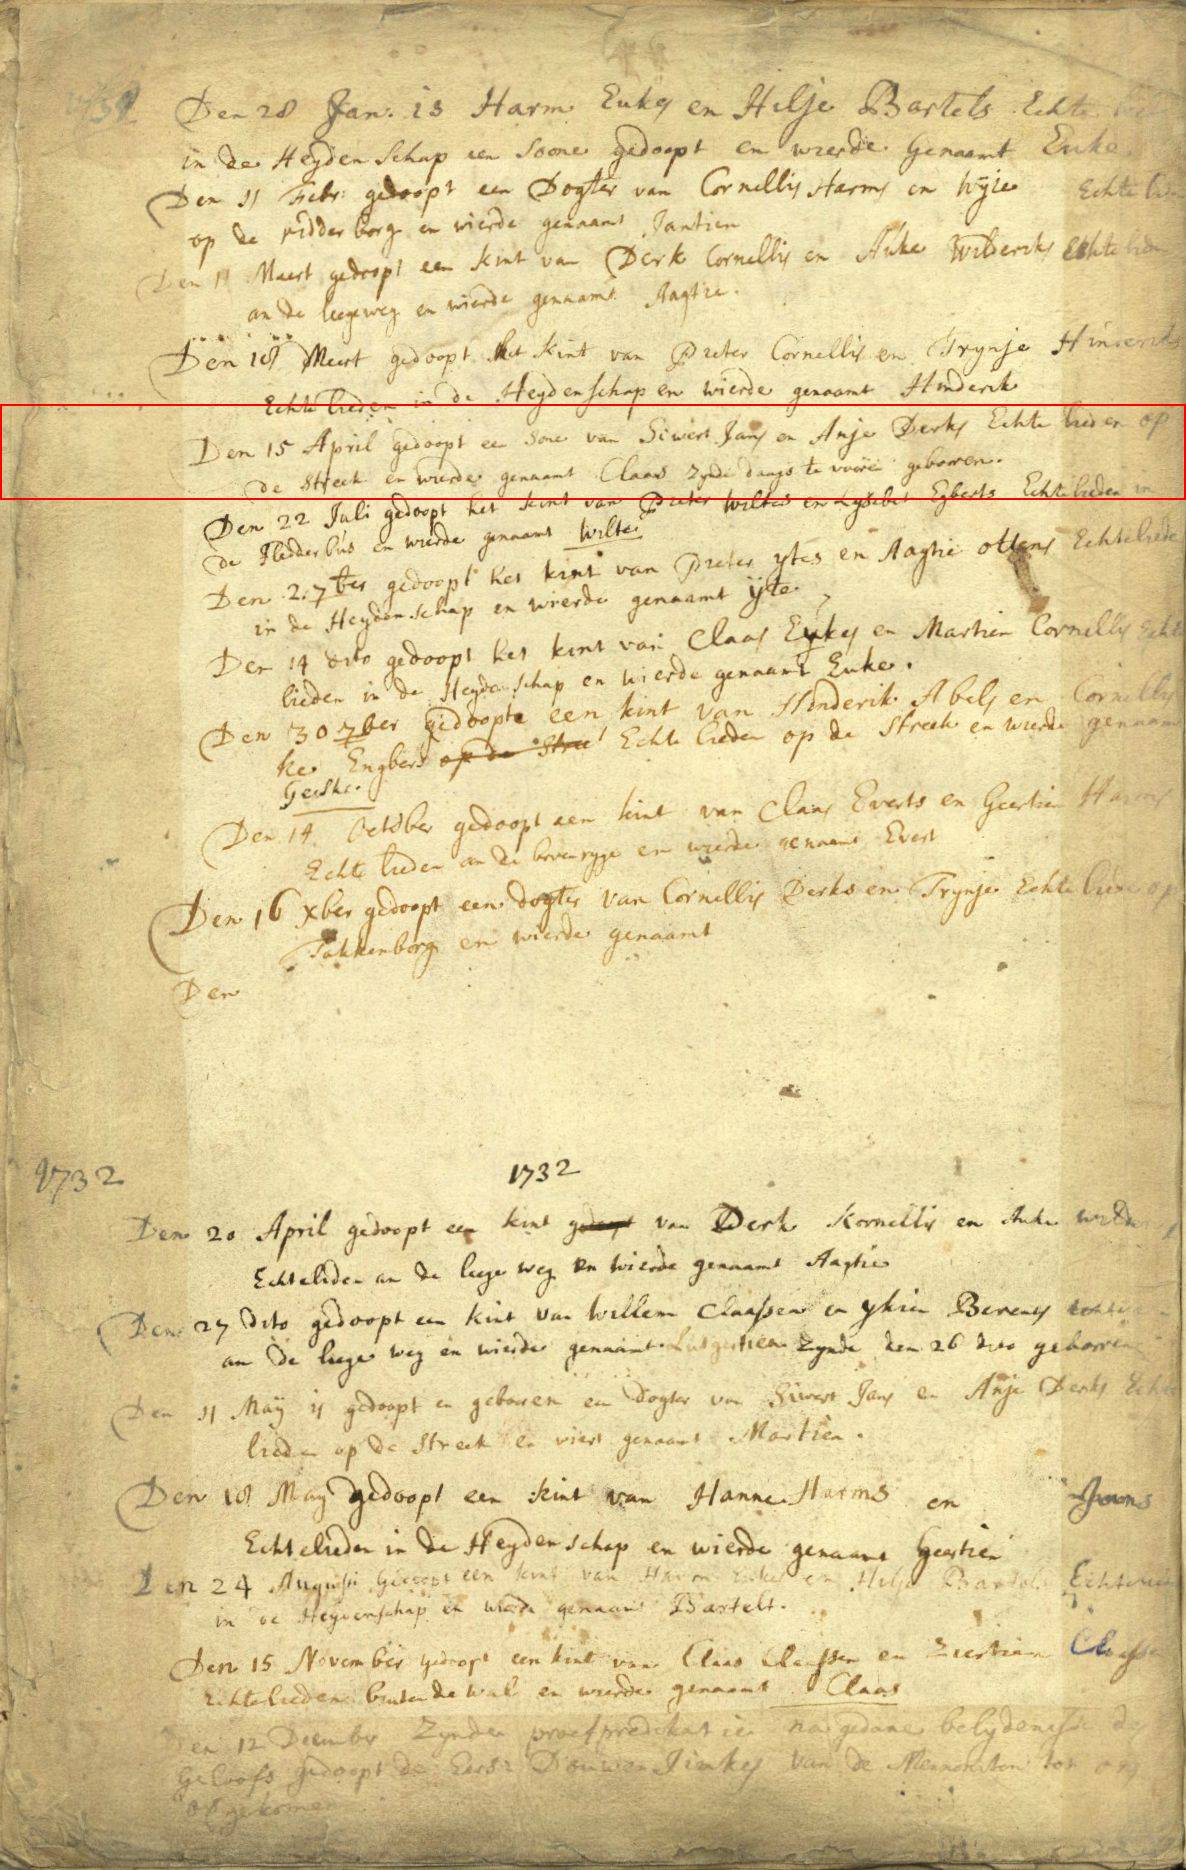 1731
Den 28 Jan: is Harm Eukes en Hilje Bartels Echte
in de Heyden Schap een Soone gedoopt en wierde Genaamt Euke
Den 11 Febr: gedoopt een Dogter van Cornellis Harms en Wyje Echte
op de ridderborg en wierde genaamt Jantien
Den 11 Maert gedoopt een kint van Derk Cornellis en Auke Wilderiks echte
an de leegeweg en wierde genaamt Aagtie.
Den 18 Meert gedoopt het kint van Pieter Cornellis en Trynje Hinderiks
Echte lieden in de Heydenschap en wierde genaamt Hinderik
Den 15 April gedoopt een Sone van Siwert Jans en Anje Derks Echte lieden op
de Streek en wierde genaamt Claas zynde daags te vooren geboren.
Den 22 Juli gedoopt het kint van Pieter Wiltes en Lysebet Egberts Echtelieden in
de Fledderbus en wierde genaamt Wilte
Den 2:7ber gedoopt het kint van Pieter ytes en Aagtie ottens Echteliede
in de Heydenschap en wierde genaamt ijte
Den 14 dito gedoopt het kint van Claas Eukes en Martien Cornellis Echte
lieden in de Heydenschap en wierde genaamt Euke.
Den 30 7ber gedoopt een kint van Hinderik Abels en Cornellis
ke Engbers op de Stree Echte lieden op de Streek en wierde genaamt
Geeske.
Den 14 October gedoopt een kint van Claas Everts en Geertien Harms
Echte lieden an de bovenrygge en wierde genaamt Evert
Den 16 Xber gedoopt een dogter van Cornellis Derks en Trynje Echte liede op
Takkenborg en wierde genaamt
Den
1732 1732
Den 20 April gedoopt een kint gedoopt van Derk Kornellis en Auke
Echteliden an de leege weg en wierde genaamt Aagtie
Den 27 dito gedoopt een kint van Willem Claassen en yhin Berents
an de leege weg en wierde genaamt Lutgertien zynde den 26 dito geboren
Den 11 May is gedoopt en geboren een dogter van Siwert Jans en Anje Derks Echte
lieden op de Streek en wiert genaamt Martien.
Den 18 May gedoopt een kint van Hanne Harms en Jouns
Echtelieden in de Heydenschap en wierde genaamt Geertien
Den 24 Augusti gedoopt een kint van Harm Eukes en Hilje Bartels
in de Heydenschap en wierde genaamt Bartelt.
Den 15 November gedoopt een kint van Claas Claassen en Claasse
Echtelieden buiten de wal en wierde genaamt Claas
Den 12 December Zynden proefpredikatie na gedane belydenisse des
Geloofs gedoopt de Eers: Douwen Jimkes van de Mennoniten tot ons
overgekomen